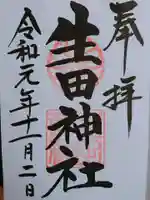 奉拝
生田神社
令和元年十一月二日